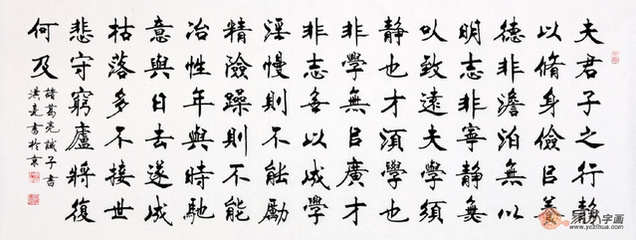 夫君子之行静
以脩身儉㠯養
德非澹泊無以
明志非寧静無
以致遠夫學須
静也才須學也
非學無㠯廣才
非志無以成學
淫慢則不能勵
精險躁則不能
冶性年與時馳
意與日去遂成
枯落多不接世
悲守窮廬將復
何及
諸葛亮誡子書
洪亮書於京
www.yczihua.com